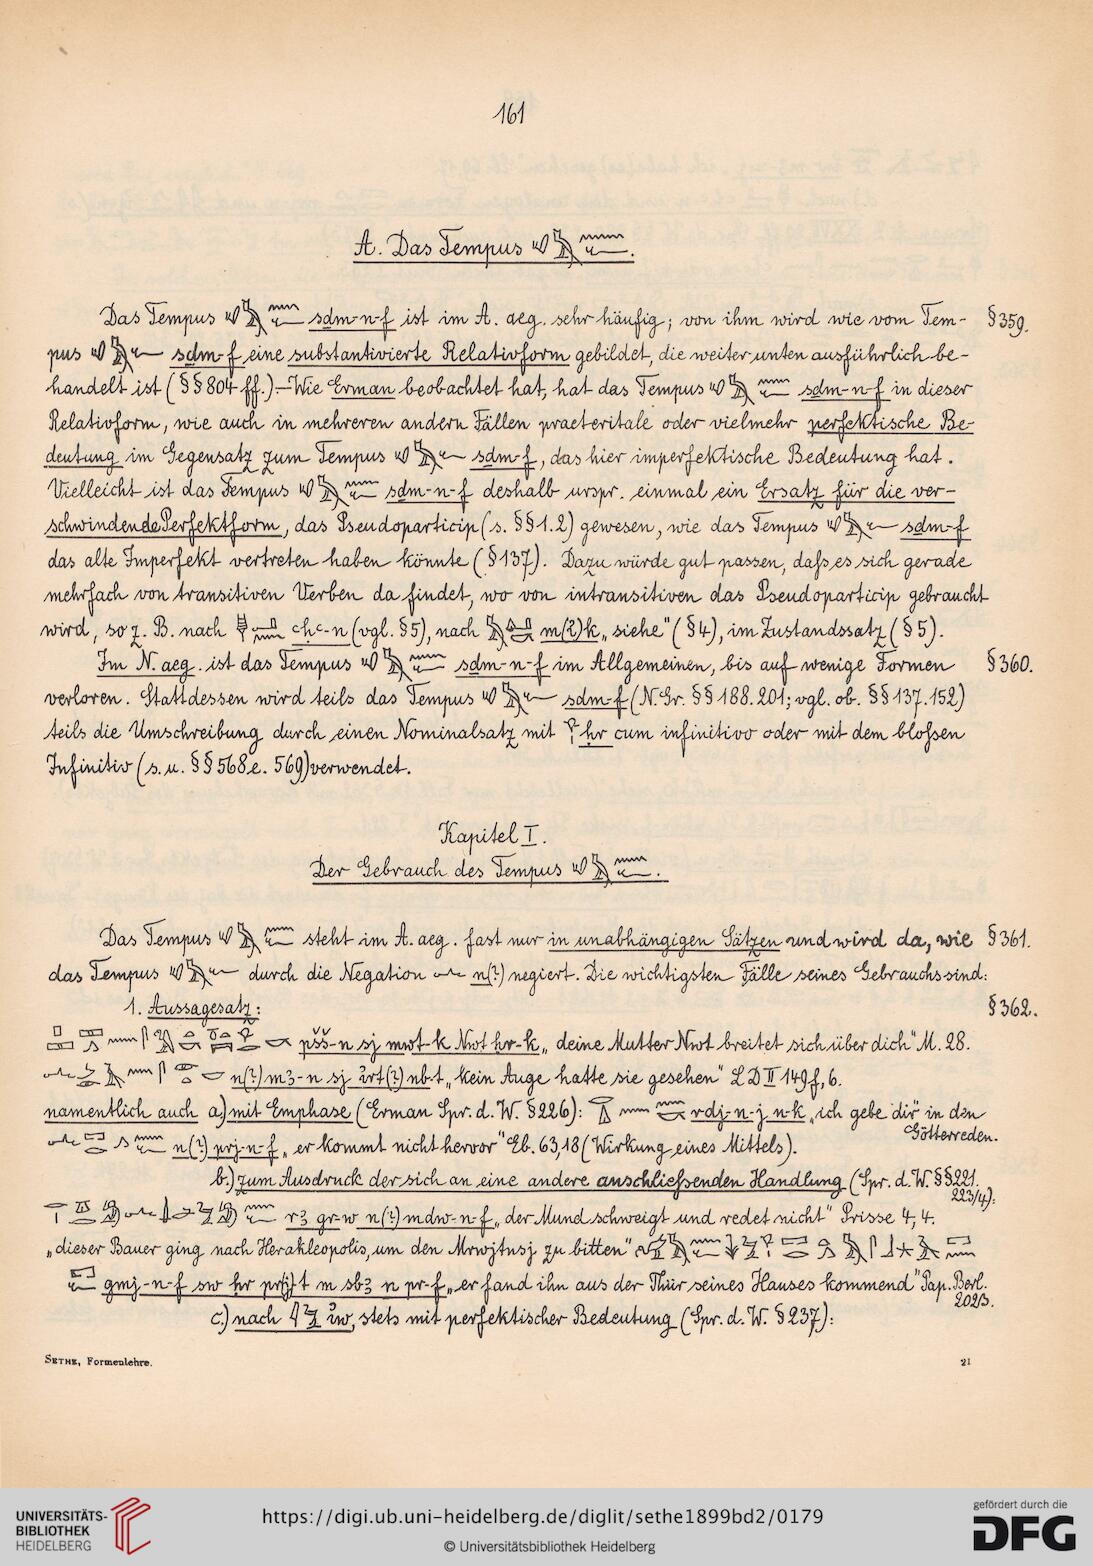 161
A. Das Tempus 𓄔𓅓𓈖𓆑.
Das Tempus 𓄔𓅓𓈖𓆑 sdm-n-f ist im A. aeg. sehr häufig; von ihm wird wie vom Tem- § 359.
pus 𓄔𓅓𓆑 sdm-f eine substantivierte Relativform gebildet, die weiter unten ausführlich be-
handelt ist (§§ 804 ff.).— Wie Erman beobachtet hat, hat das Tempus 𓄔𓅓𓈖𓆑 sdm-n-f in dieser
Relativform, wie auch in mehreren andern Fällen praeteritale oder vielmehr perfektische Be-
deutung im Gegensatz zum Tempus 𓄔𓅓𓆑 sdm-f, das hier imperfektische Bedeutung hat.
Vielleicht ist das Tempus 𓄔𓅓𓈖𓆑 sdm-n-f deshalb urspr. einmal ein Ersatz für die ver-
schwindende Perfektform, das Pseudoparticip (s. §§ 1.2) gewesen, wie das Tempus 𓄔𓅓𓆑 sdm-f
das alte Imperfekt vertreten haben könnte (§ 137). Dazu würde gut passen, daſs es sich gerade
mehrfach von transitiven Verben da findet, wo von intransitiven das Pseudoparticip gebraucht
wird, so z. B. nach ꜥḥꜥ-n (vgl. § 5), nach m(?)k „siehe" (§ 4), im Zustandssatz (§ 5).
Im N. aeg. ist das Tempus 𓄔𓅓𓈖𓆑 sdm-n-f im Allgemeinen, bis auf wenige Formen § 360.
verloren. Stattdessen wird teils das Tempus 𓄔𓅓𓆑 sdm-f (N. Gr. §§ 188. 201; vgl. ob. §§ 137. 152)
teils die Umschreibung durch einen Nominalsatz mit 𓁷 ḥr cum infinitivo oder mit dem bloſsen
Infinitiv (s. u. §§ 568e. 569) verwendet.
Kapitel I.
Der Gebrauch des Tempus 𓄔𓅓𓈖𓆑.
Das Tempus 𓄔𓅓𓈖𓆑 steht im A. aeg. fast nur in unabhängigen Sätzen und wird da, wie § 361.
das Tempus 𓄔𓅓𓆑 durch die Negation 𓂜 n(?) negiert. Die wichtigsten Fälle seines Gebrauchs sind:
1. Aussagesatz: § 362.
pšš-n sj mwt-k Nwt ḥr-k „deine Mutter Nwt breitet sich über dich" M. 28.
n(?) mꜣ-n sj ỉrt(?) nb-t „kein Auge hatte sie gesehen" L D II 149 f, 6.
namentlich auch a.) mit Emphase (Erman Spr. d. W. § 226): rdj-n-j n-k „ich gebe dir" in den
Götterreden.
n(?) prj-n-f „er kommt nicht hervor" Eb. 63,18 (Wirkung eines Mittels).
b.) zum Ausdruck der sich an eine andere anschlieſsenden Handlung (Spr. d. W. §§ 221.
223/4):
rꜣ gr-w n(?) mdw-n-f „der Mund schweigt und redet nicht" Prisse 4, 4.
„dieser Bauer ging nach Herakleopolis, um den Mrwjtnsj zu bitten"
gmj-n-f sw ḥr pr(j)t m sbꜣ n pr-f „er fand ihn aus der Thür seines Hauses kommend" Pap. Berl.
202/3.
c.) nach ỉw, stets mit perfektischer Bedeutung (Spr. d. W. § 237):
SETHE, Formenlehre. 21
UNIVERSITÄTS-
BIBLIOTHEK
HEIDELBERG
https://digi.ub.uni-heidelberg.de/diglit/sethe1899bd2/0179
© Universitätsbibliothek Heidelberg
gefördert durch die
DFG